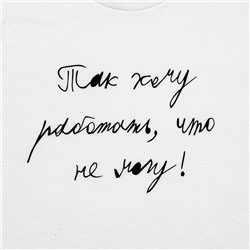 Так хочу
работать, что
не могу!